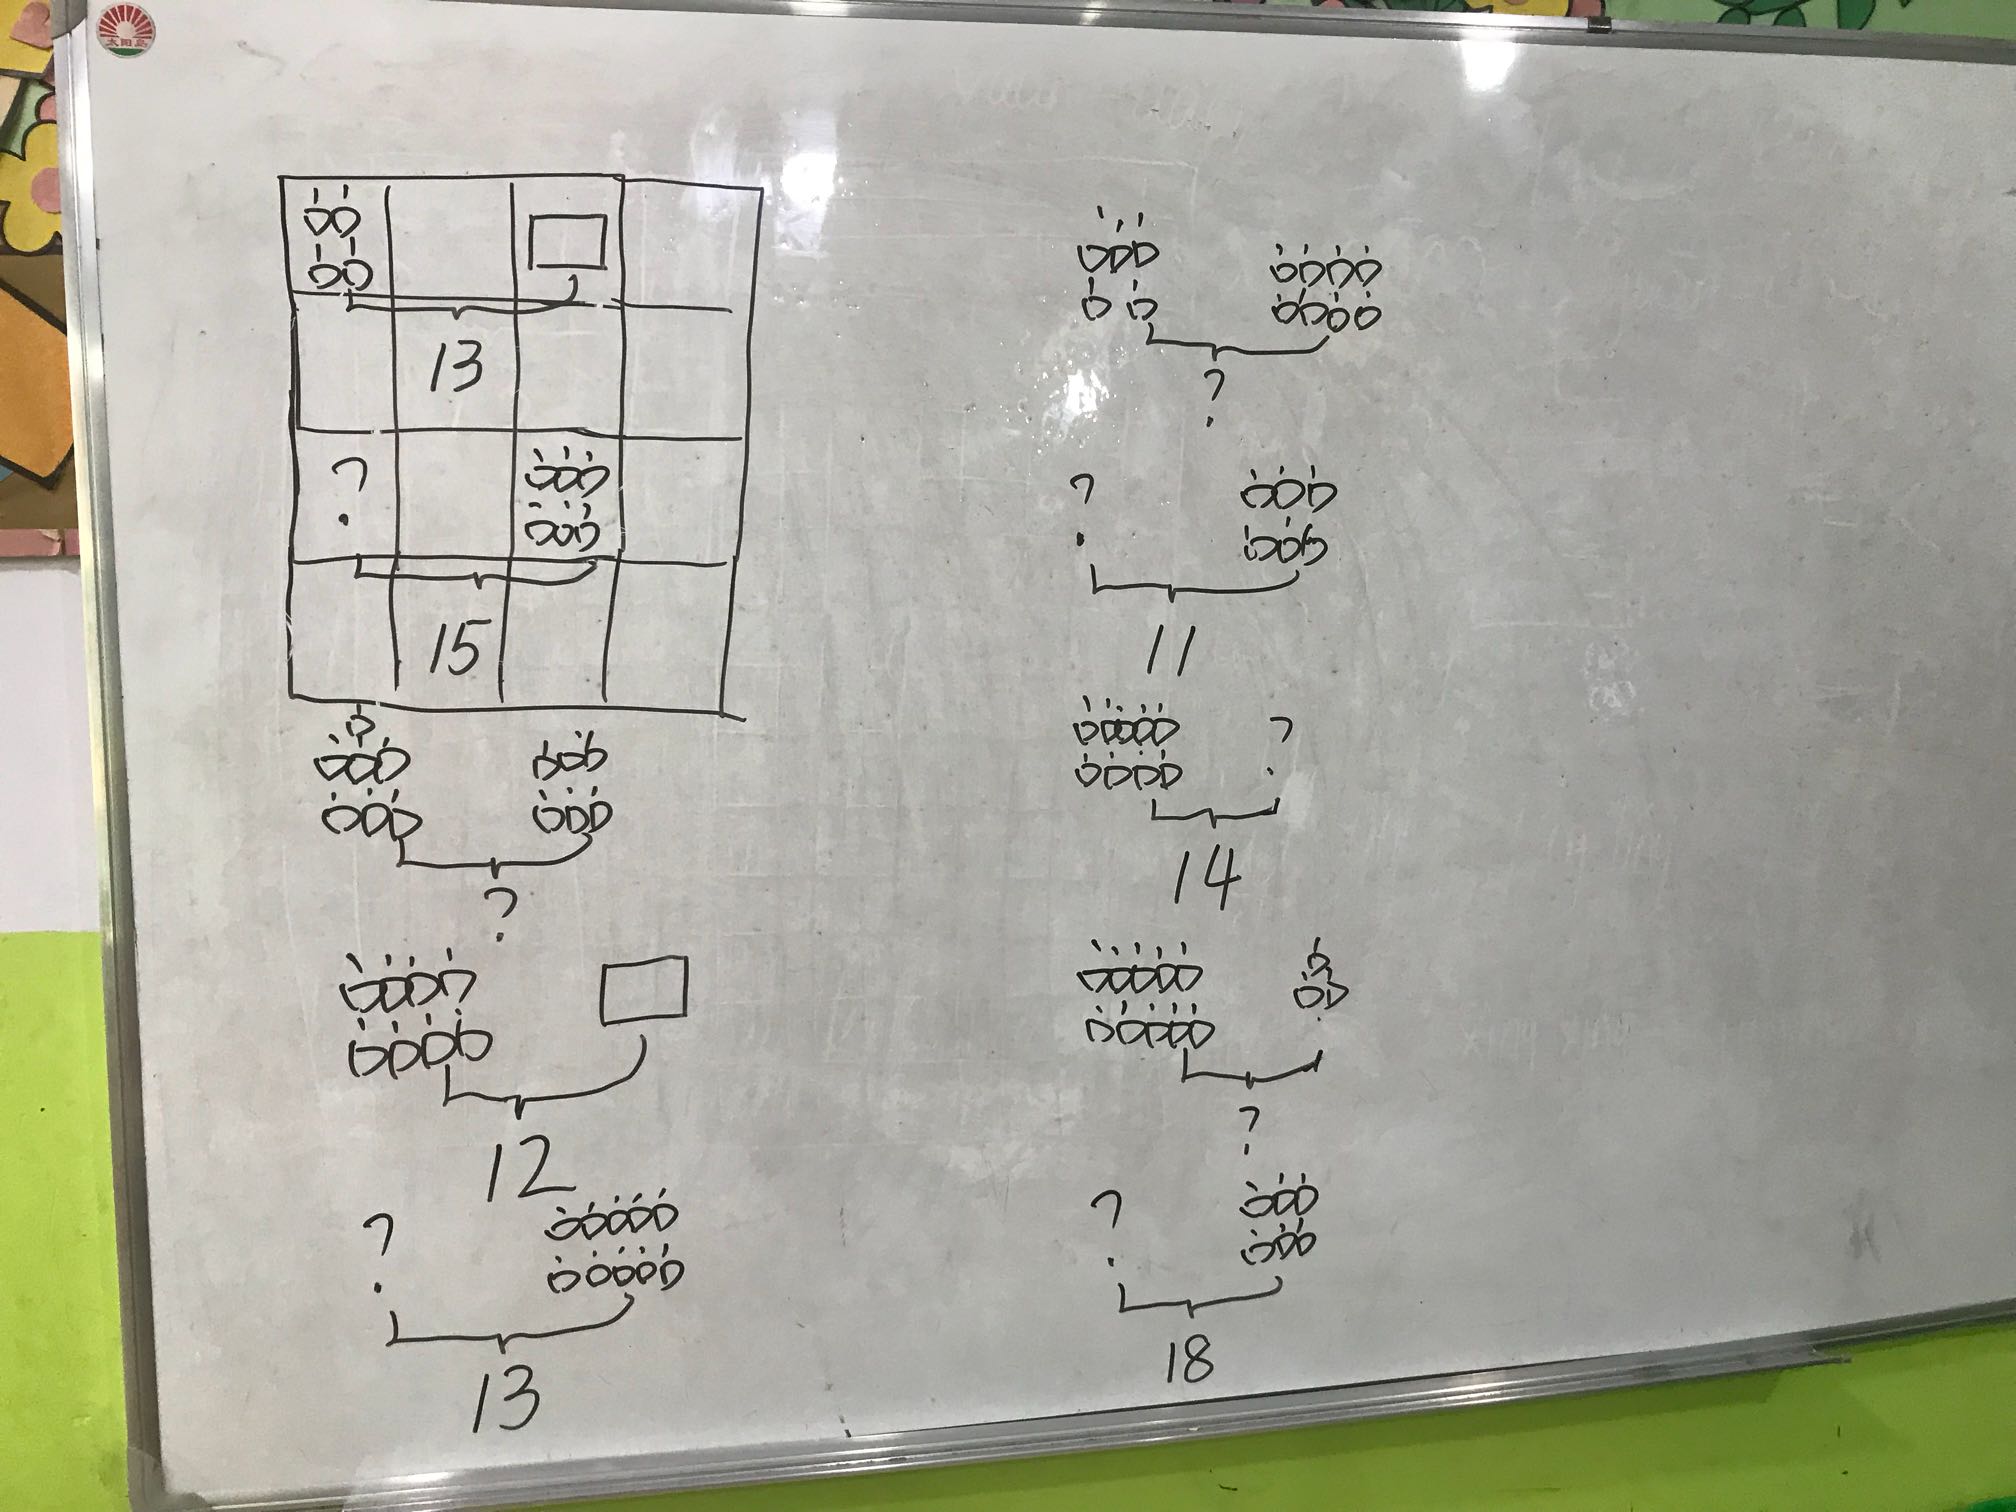 太阳岛
13
?
15
?
12
?
13
?
?
11
?
14
?
?
18